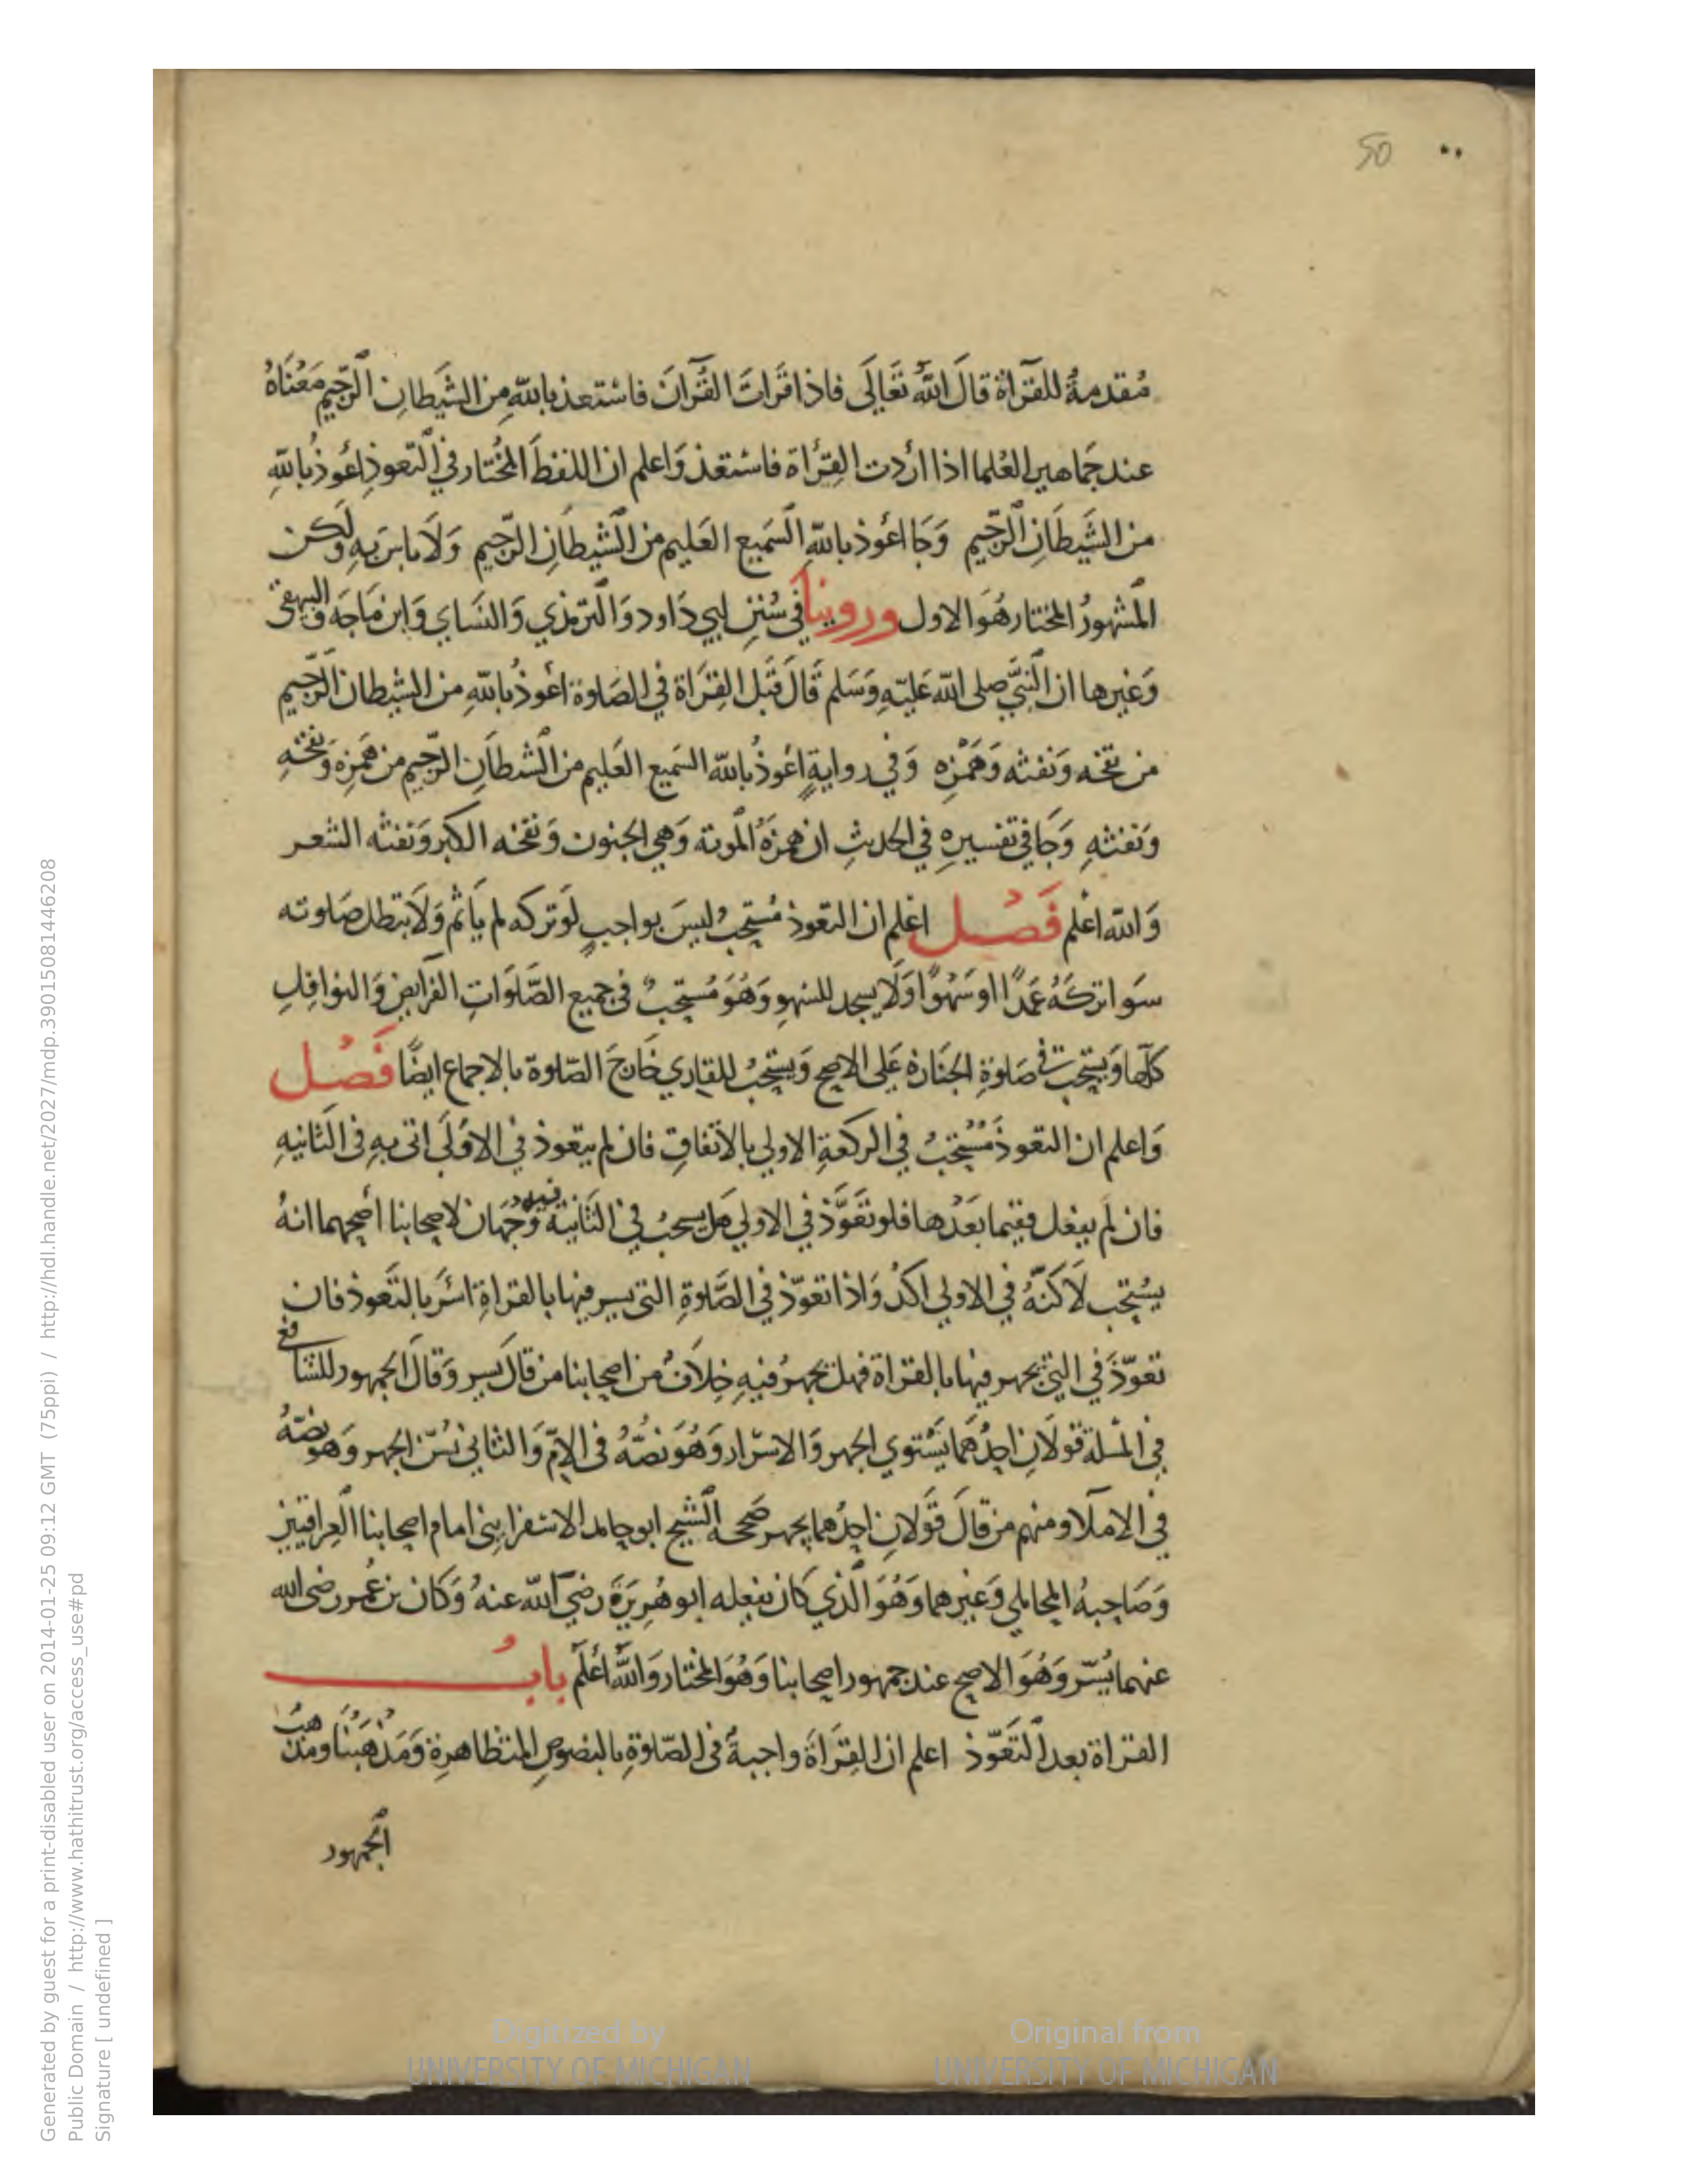 50
مُقدمةٌ للقرآاة قالَ اللهُ تَعَالَى فاذا قَراتَ القُرآنَ فاسْتعذ بالله مِن الشيَطانِ الرّجيم مَعْنَاهُ
عند جَماهير العُلما اذا ارُدت القِرُاة فاستعذ وَاعلم ان اللفظَ المُختار في التعوذِ اعُوذُ بالله
من الشَيطَانِ الرّجيم وَجَا اعُوذ بالله السَميع العَليم من الشيطَانِ الرّجيم وَلَا باس بهِ ولكن
المشهورُ المختار هُوَ الاول وروينا في سُننِ ابي دَاود وَالترمذي وَالنسَاي وَابن مَاجَه والبيهقي
وَغيرها ان النبيَّ صلى الله عَليهِ وَسَلم قَالَ قَبل القِرَاة في الصَلوة اعُوذُ بالله من الشيطان الرّجيم
من نفخه وَنفثه وَهَمْزِه وَفي روايةٍ اعُوذُ بالله السَميع العَليم من الشيطَانِ الرّجيم من هَمزِه وَنفخهِ
وَنفثهِ وَجَا في تفسيرهِ في الحديثِ ان همزَهُ المُوتة وَهي الجنون وَنفخه الكبر وَنفثه الشعر
وَالله اعْلم فَصْل اعْلم ان التعوذ مُستحبٌ ليسَ بواجبٍ لَو تركه لم يَاثم وَلَا بَتطل صَلوته
سَوا تركَهُ عَمدًا او سَهْوًا وَلَا يسجد للسهوِ وَهُوَ مُستحبٌ في جميع الصَّلَوَاتِ الفرَايض وَالنوافِل
كلها وَيستحب في صَلوةِ الجنَازة عَلى الاصح وَيستحبُ للقَاري خَارجَ الصّلوة بالاجماع ايضًا فَصْل
وَاعلم ان التعوذَ مُستحبٌ في الركعةِ الاولي بالاتفاقِ فان لم يتعوذ في الاوَلَى اتى بهِ في الثانيهِ
فان لم يفعَل ففيما بَعْدها فلو تَعَوَّذ في الاولي هَل يسحبُ في الثانيَة فيه وَجْهَان لاصحابنا اصحهما انهُ
يسُتحب لَاكنّهُ في الاولي اكدُ وَاذا تعوّذ في الصَّلوةِ التي يسر فيها بالقراةِ اسَر بالتَعوذ فان
تعوّذَ في التي يجهر فيها بالقراة فهل يجهرُ فيهِ خِلَافٌ من اصحابنا من قالَ يسر وَقالَ الجمهور للشافعي
في المسلة قولَانِ احدُهَما يَسْتوي الجهر وَالاسْرار وَهُوَ نصّهُ في الامّ وَالثاني يُسّن الجهر وَهو نصّهُ
في الاملا ومنهم من قالَ قَولانِ احدُهما يجهر صَححه الشيخ ابو حامد الاسفرايني امام اصحابنا العِراقيين
وَصَاحبهُ المحاملي وَغيرهما وَهُوَ الذي كان يفعله ابو هُرِيَرَة رضيَ الله عنهُ وَكان بن عُمر رضى الله
عنهما يُسّر وَهُوَ الاصح عند جمهور اصحابنا وَهُوَ المختار وَالله اعْلَم بابُ
القراة بعد التَعَوّذ اعلم ان القِرَاةَ واجبةٌ في الصّلوةِ بالنصُوصِ المتظاهرةِ وَمَذهَبُنَا ومَذهبُ
الجمهور
Generated by guest for a print-disabled user on 2014-01-25 09:12 GMT (75ppi) / http://hdl.handle.net/2027/mdp.39015081446208
Public Domain / http://www.hathitrust.org/access_use#pd
Signature [ undefined ]
Digitized by
UNIVERSITY OF MICHIGAN
Original from
UNIVERSITY OF MICHIGAN